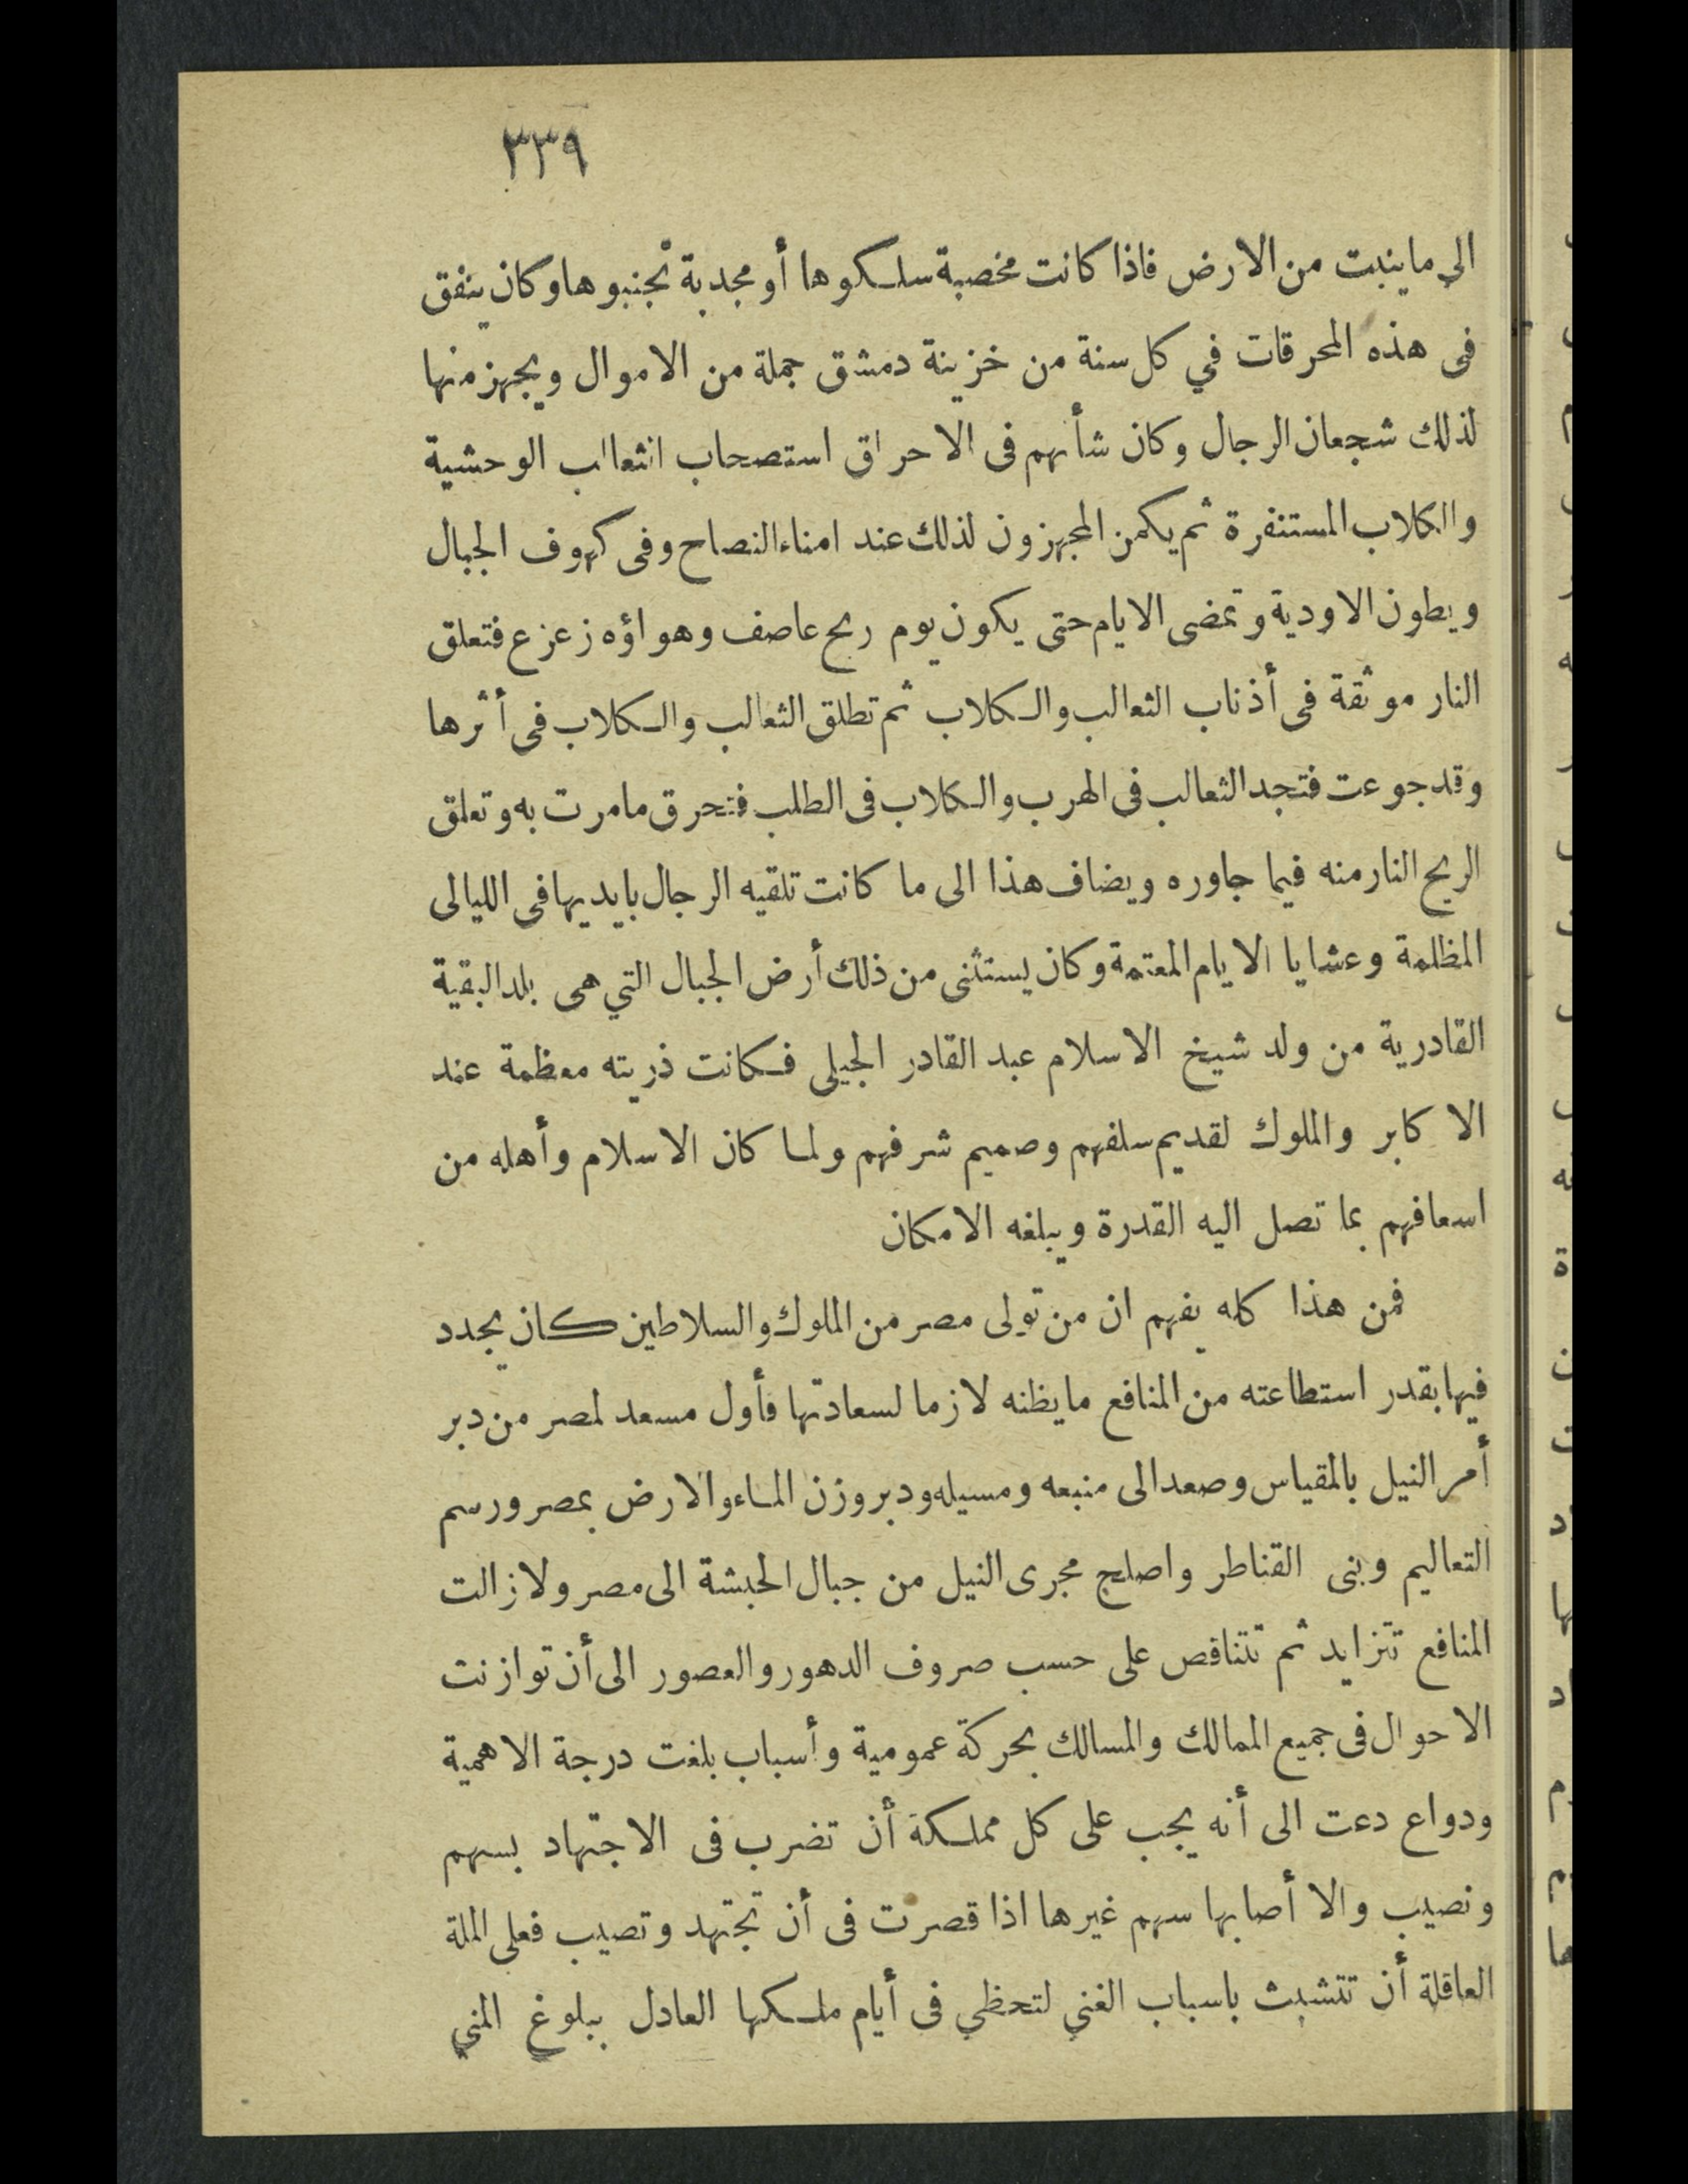 ٣٣٩
الى ما ينبت من الارض فاذا كانت مخصبة سلكوها أو مجدبة تجنبوها وكان ينفق
فى هذه المحرقات في كل سنة من خزينة دمشق جملة من الاموال ويجهز منها
لذلك شجعان الرجال وكان شأنهم فى الاحراق استصحاب الثعالب الوحشية
والكلاب المستنفرة ثم يكمن المجهزون لذلك عند امناء النصاح وفى كهوف الجبال
وبطون الاودية وتمضى الايام حتى يكون يوم ريح عاصف وهواؤه زعزع فتعلق
النار موثقة فى أذناب الثعالب والكلاب ثم تطلق الثعالب والكلاب فى أثرها
وقد جوعت فتجد الثعالب فى الهرب والكلاب فى الطلب فتحرق ما مرت به وتعلق
الريح النار منه فيما جاوره ويضاف هذا الى ما كانت تلقيه الرجال بايديها فى الليالى
المظلمة وعشايا الايام المعتمة وكان يستثنى من ذلك أرض الجبال التي هى بلد البقية
القادرية من ولد شيخ الاسلام عبد القادر الجيلى فكانت ذريته معظمة عند
الاكابر والملوك لقديم سلفهم وصميم شرفهم ولما كان الاسلام وأهله من
اسعافهم بما تصل اليه القدرة ويبلغه الامكان
فمن هذا كله يفهم ان من تولى مصر من الملوك والسلاطين كان يجدد
فيها بقدر استطاعته من المنافع ما يظنه لازما لسعادتها فأول مسعد لمصر من دبر
أمر النيل بالمقياس وصعد الى منبعه ومسيله ودبر وزن الماء والارض بمصر ورسم
التعاليم وبنى القناطر واصلح مجرى النيل من جبال الحبشة الى مصر ولا زالت
المنافع تتزايد ثم تتناقص على حسب صروف الدهور والعصور الى أن توازنت
الاحوال فى جميع الممالك والمسالك بحركة عمومية وأسباب بلغت درجة الاهمية
ودواع دعت الى أنه يجب على كل مملكة أن تضرب فى الاجتهاد بسهم
ونصيب والا أصابها سهم غيرها اذا قصرت فى أن تجتهد وتصيب فعلى الملة
العاقلة أن تتشبث باسباب الغني لتحظي فى أيام ملكها العادل ببلوغ المني